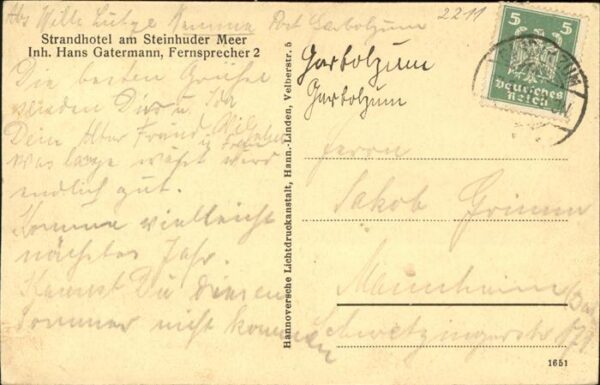 Abs Wille Lütge Post Garbolzum
2211
Strandhotel am Steinhuder Meer
Inh. Hans Gatermann, Fernsprecher 2
Die besten Grüße
senden Dir u. Ida
Dein Alter Freund
u Frau
was lange währt wird
endlich gut.
Komme vielleicht
nächstes Jahr.
Kannst Du diesen
Sommer nicht kommen
Hannoversche Lichtdruckanstalt, Hann.-Linden, Velberstr. 5
Garbolzum
Garbolzum
5 5
Deutsches
Reich
Herrn
Jakob Grimm
Mannheim
Schwetzingerstr
1651